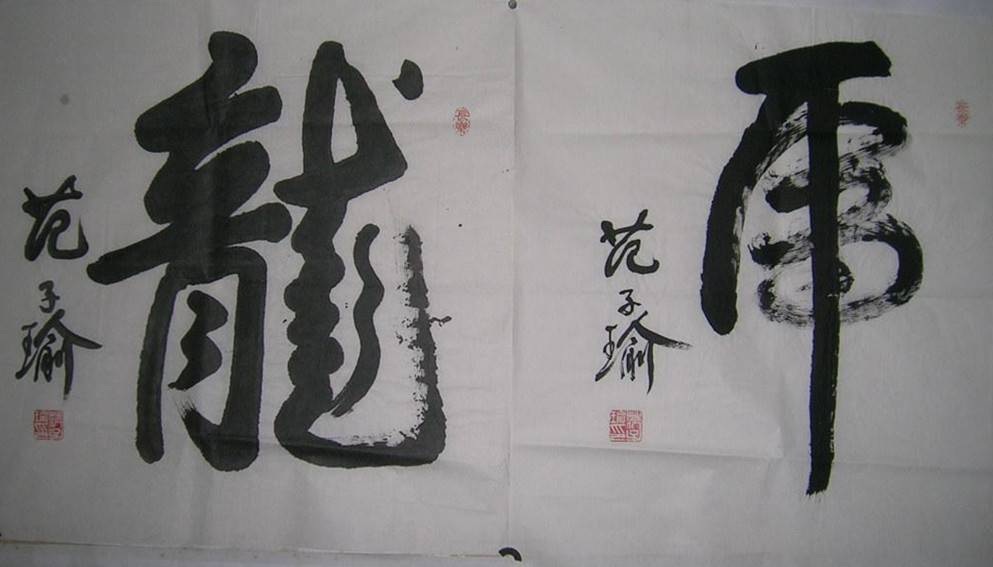 龍
范子瑜
虎
范子瑜